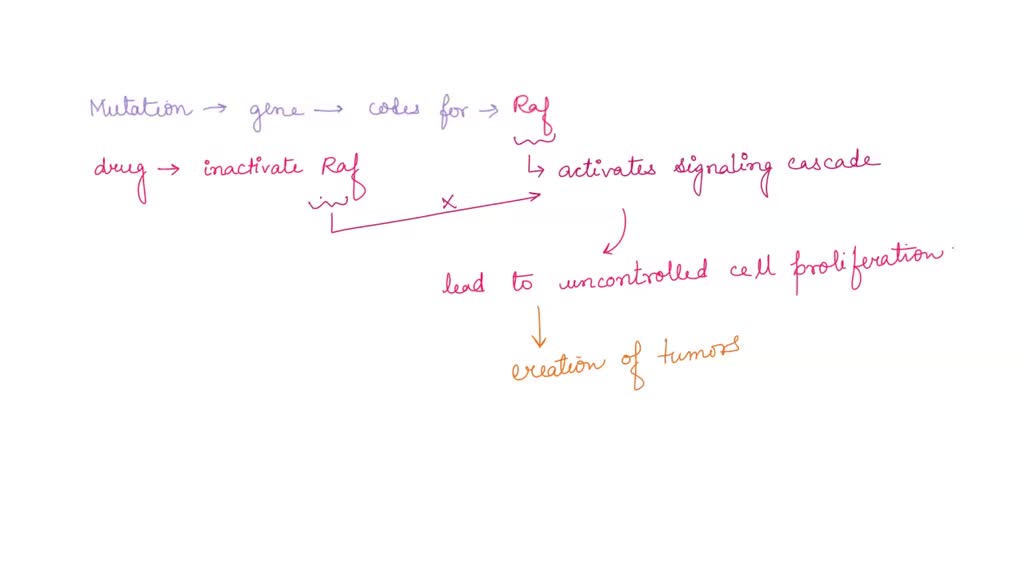 Mutation → gene → codes for → Raf
drug → inactivate Raf
↳ activates signaling cascade
x
lead to uncontrolled cell proliferation.
creation of tumors